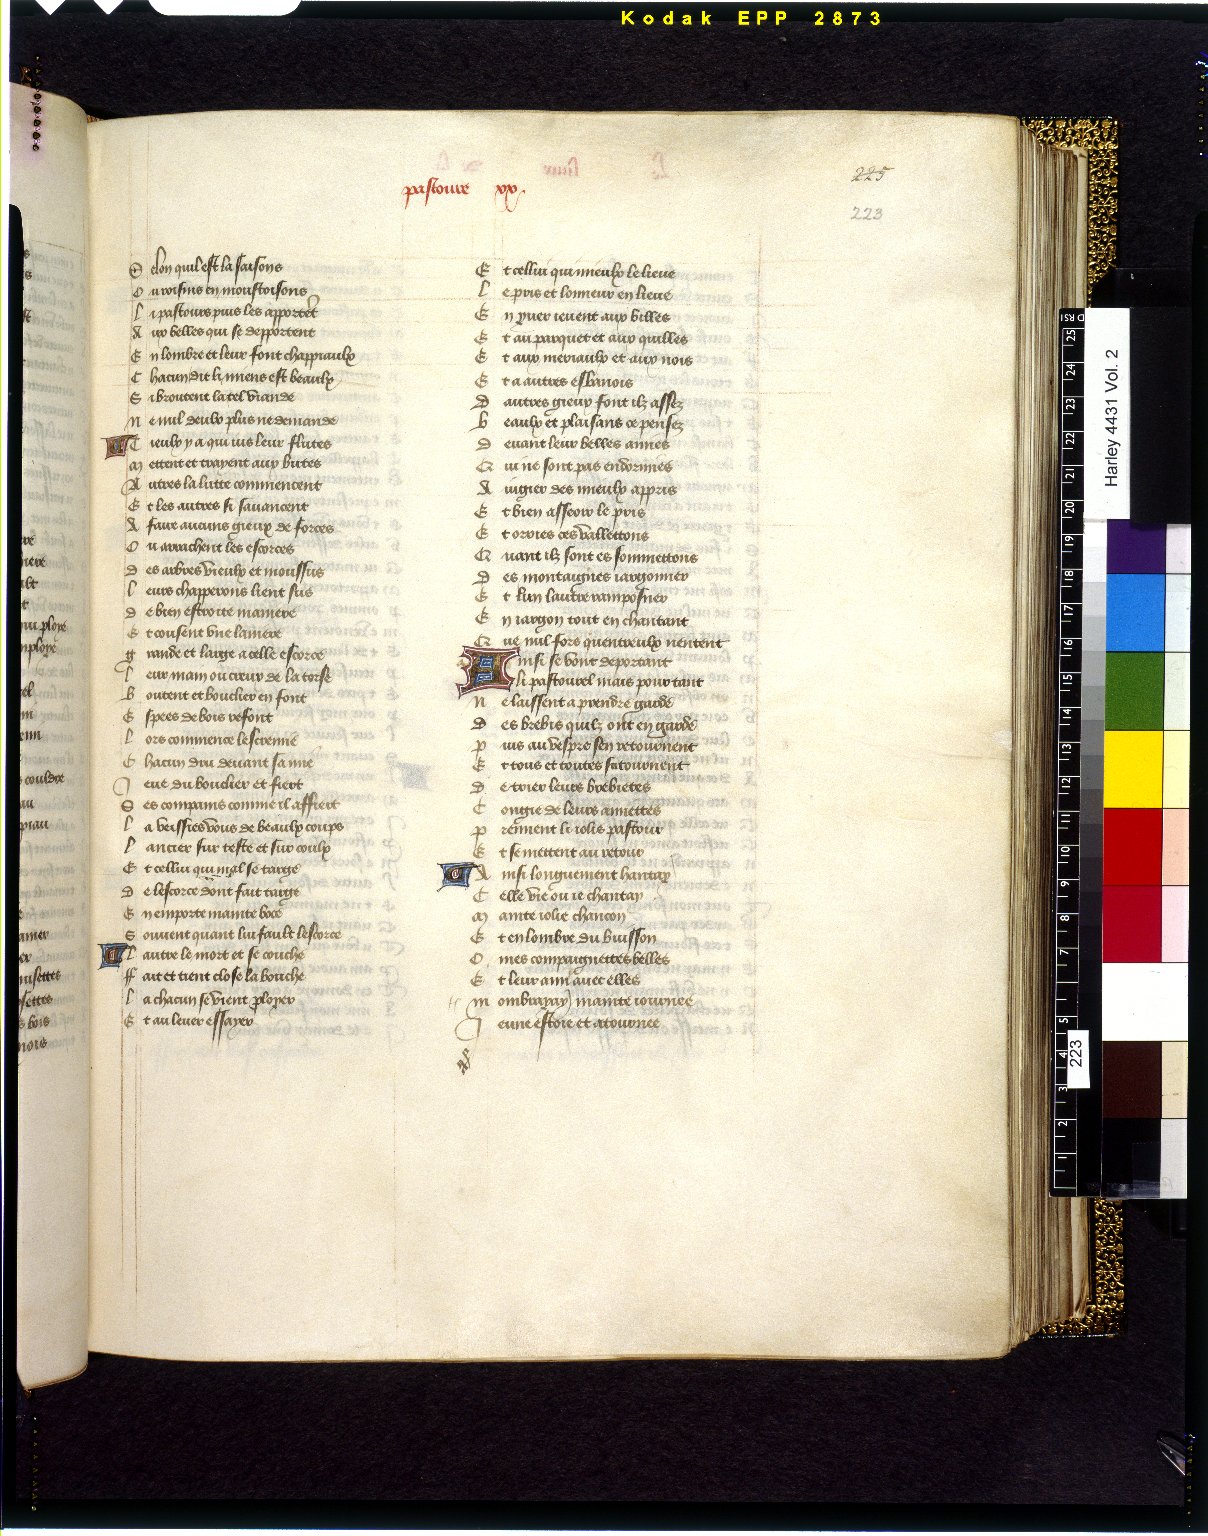 Kodak EPP 2873
pastoure xx.
225
223
S elon quil est la saisons
O u roisins en moustoisons
L i pastours puis les apportent
A ux belles qui se deportent
E n lombre et leur font chappiaulx
C hacun dit li miens est beaulx
S i broutent la tel viande
N e nul deulx plus ne demande
T ieulx y a qui jus leur flutes
M ettent et trayent aux butes
A utres la lutte commencent
E t les autres si sauancent
A faire aucuns gieux de forces
O u arrachent les escorces
D es arbres vieulx et moussus
L eurs chapperons lient sus
D e bien estroite maniere
E t cousent vne laniere
G rande et large a celle escorce
L eur main ou cueur de la torse
B outent et bouclier en font
E spees de bois refont
L ors commence lescremie
C hacun dru deuant samie
J eue du bouclier et fiert
S es compains comme il affiert
L a veissies vous de beaulx coups
L ancier sur teste et sur coulx
E t cellui qui mal se targe
D e lescorce dont fait targe
E n emporte mainte boce
S ouuent quant lui fault lescorce
L autre le mort et se couche
F ait et tient close la bouche
L a chacun se vient ployer
E t au leuer essayer
E t cellui qui mieulx le lieue
L e pris et lonneur en lieue
E n yuer ieuent aux billes
E t au parquet et aux quilles
E t aux meriaulx et aux nois
E t a autres esbanois
D autres gieux font ilz assez
B eaulx et plaisans ce pensez
D euant leur belles amies
Q ui ne sont pas endormies
A iugier des mieulx appris
E t bien asseoir le pris
E t orries ces vallettons
Q uant ilz sont es sommettons
D es montaignes iargonner
E t lun lautre ramposner
E n iargon tout en chantant
Q ue nul fors quentreulx nentent
A insi se vont deportant
li pastourel mais pour tant
N e laissent a prendre garde
D es brebis quilz ont en garde
P uis au vespre sen retournent
E t tous et toutes satournent
D e trier leurs brebietes
C ongie de leurs amiettes
P rennent li iolis pastour
E t se mettent au retour
A insi longuement hantay
C elle vie ou ie chantay
M ainte iolie chancon
E t en lombre du buisson
O mes compaignettes belles
E t leur ami auec elles
M ombrayay mainte iournee
J eune estoie et atournee
Harley 4431 Vol. 2
25
24
23
22
21
20
19
18
17
16
15
14
13
12
11
10
9
8
7
5
4
3
2
1
223